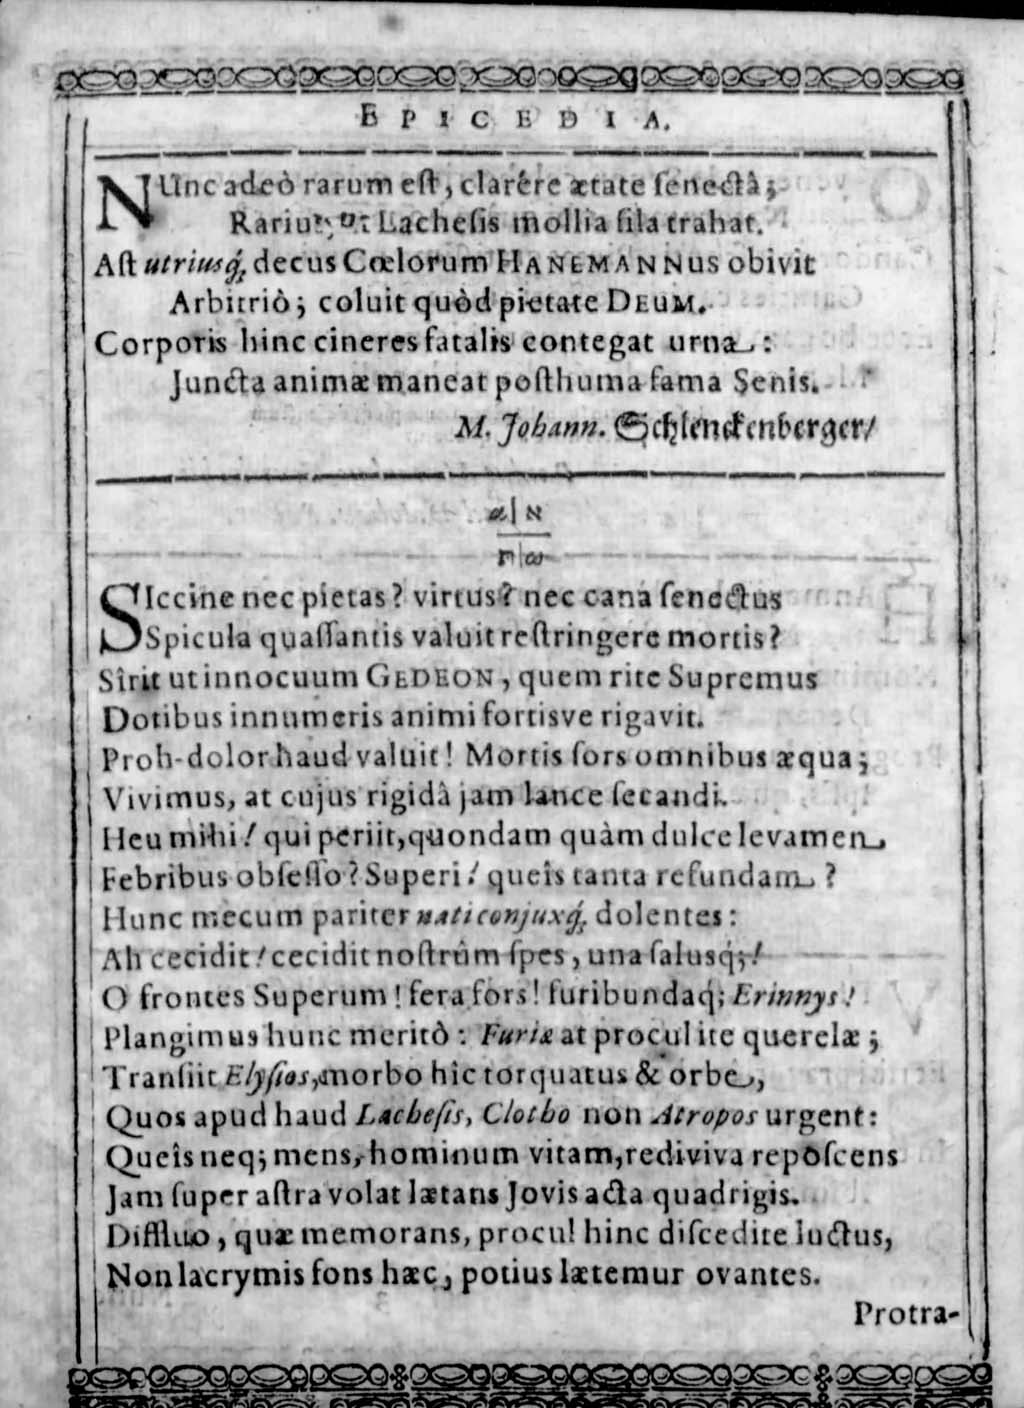 EPICEDIA.
NUnc adeò rarum eſt, clarére ætate ſenectâ;
Rarius, ut Lacheſis mollia fila trahat.
Aſt utriusq́; decus Cœlorum HANEMANNus obivit
Arbitriò; coluit quòd pietate DEUM.
Corporis hinc cineres fatalis contegat urna:
Juncta animæ maneat poſthuma fama Senis.
M. Johann. Schlenckenberger/
α|א
ת|ω
SIccine nec pietas? virtus? nec cana ſenectus
Spicula quaſſantis valuit reſtringere mortis?
Sîrit ut innocuum GEDEON, quem rite Supremus
Dotibus innumeris animi fortisve rigavit.
Proh-dolor haud valuit! Mortis ſors omnibus æqua;
Vivimus, at cujus rigidâ jam lance ſecandi.
Heu mihi! qui periit, quondam quàm dulce levamen
Febribus obſeſſo? Superi! queîs tanta refundam?
Hunc mecum pariter nati conjuxq́; dolentes:
Ah cecidit! cecidit noſtrûm ſpes, una ſalusq́;!
O frontes Superum! fera ſors! furibundaq́; Erinnys!
Plangimus hunc meritò: Furiæ at procul ite querelæ;
Tranſiit Elyſios, morbo hîc torquatus & orbe,
Quos apud haud Lacheſis, Clotho non Atropos urgent:
Queîs neq; mens, hominum vitam, rediviva repoſcens
Jam ſuper aſtra volat lætans Jovis acta quadrigis.
Diffluo, quæ memorans, procul hinc diſcedite luctus,
Non lacrymis fons hæc, potius lætemur ovantes.
Protra-